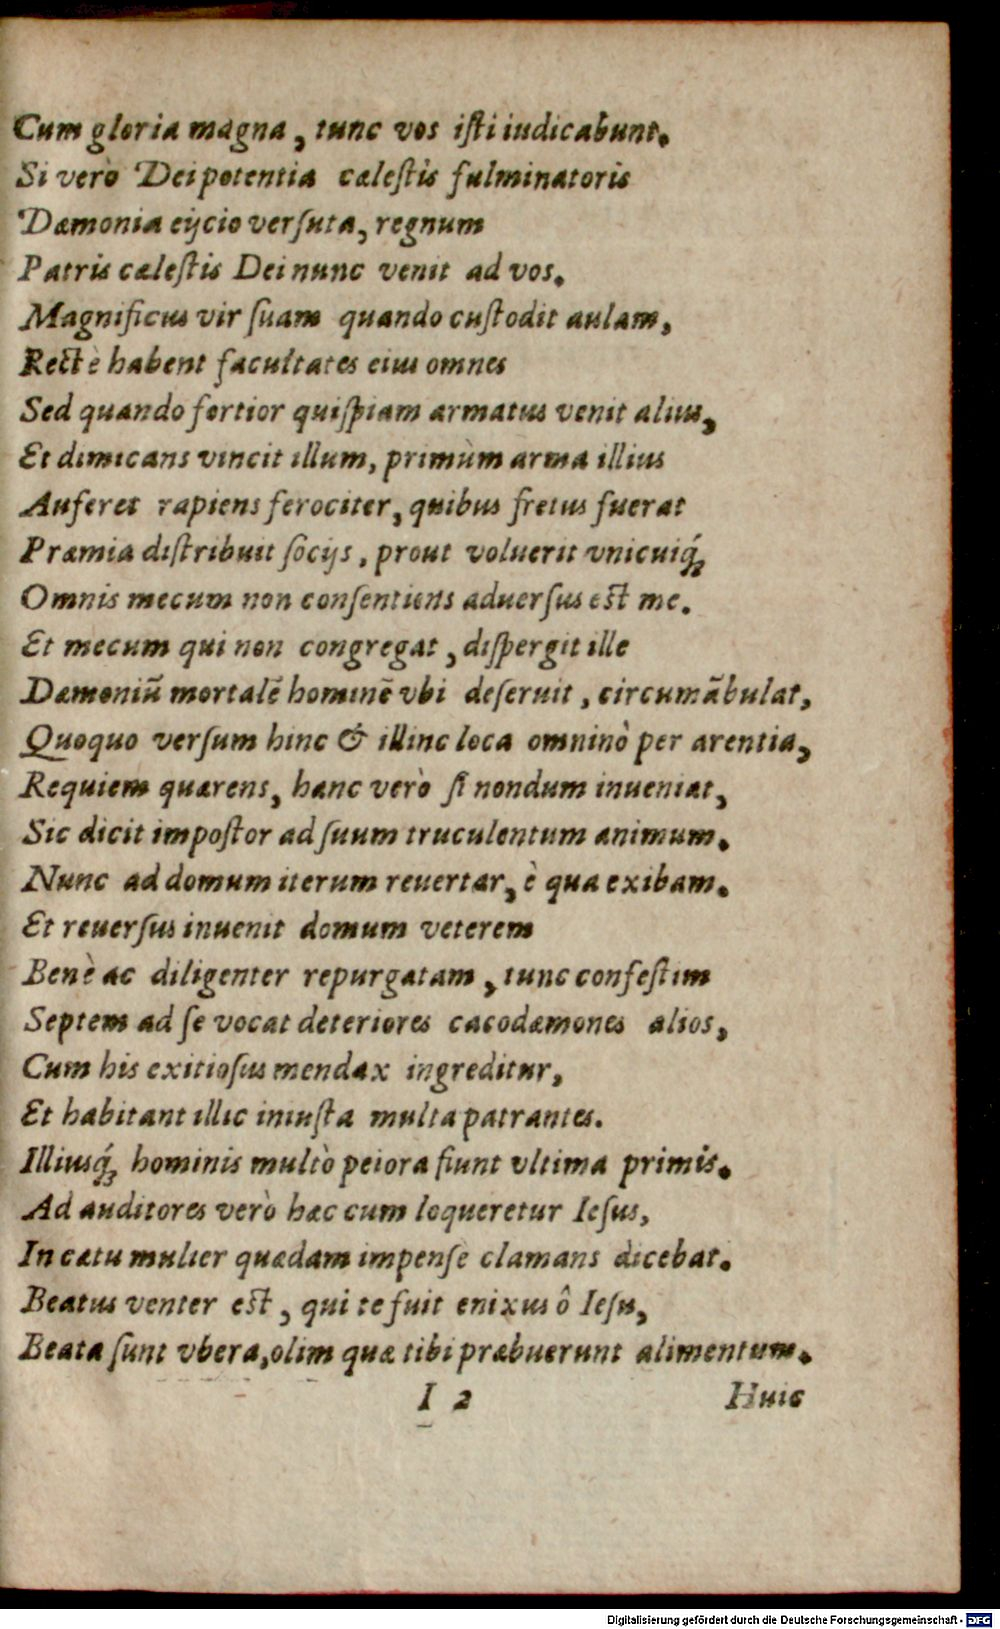 Cum gloria magna, tunc vos iſti iudicabunt.
Si verò Dei potentia cæleſtis fulminatoris
Dæmonia eijcio verſuta, regnum
Patris cæleſtis Dei nunc venit ad vos.
Magnificus vir ſuam quando cuſtodit aulam,
Rectè habent facultates eius omnes
Sed quando fortior quiſpiam armatus venit alius,
Et dimicans vincit illum, primùm arma illius
Auferet rapiens ferociter, quibus fretus fuerat
Præmia diſtribuit ſocijs, prout voluerit vnicuiq́₃
Omnis mecum non conſentiens aduerſus eſt me.
Et mecum qui non congregat, diſpergit ille
Dæmoniũ mortalẽ hominẽ vbi deſeruit, circumãbulat,
Quoquo verſum hinc & illinc loca omninò per arentia,
Requiem quærens, hanc verò ſi nondum inueniat,
Sic dicit impoſtor ad ſuum truculentum animum.
Nunc ad domum iterum reuertar, è qua exibam.
Et reuerſus inuenit domum veterem
Benè ac diligenter repurgatam, tunc confeſtim
Septem ad ſe vocat deteriores cacodæmones alios,
Cum his exitioſus mendax ingreditur,
Et habitant illic iniuſta multa patrantes.
Illiusq́₃ hominis multò peiora fiunt vltima primis.
Ad auditores verò hæc cum loqueretur Ieſus,
In cætu mulier quædam impenſè clamans dicebat.
Beatus venter eſt, qui te fuit enixus ô Ieſu,
Beata ſunt vbera, olim quæ tibi præbuerunt alimentum.
I 2 Huic
Digitalisierung gefördert durch die Deutsche Forschungsgemeinschaft - DFG